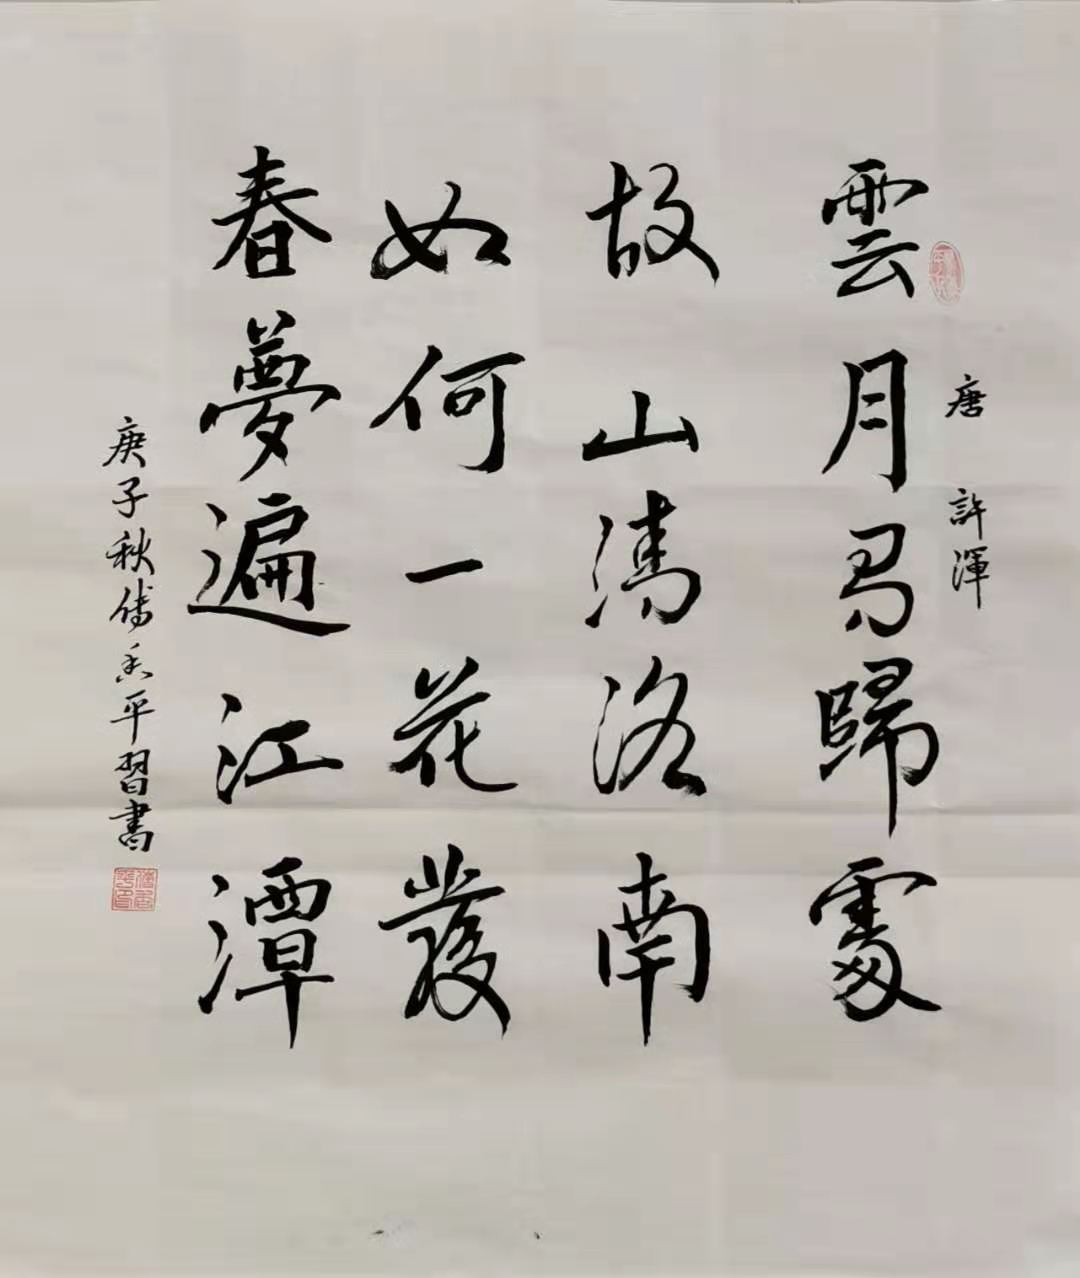 唐 許渾
雲月有歸處
故山清洛南
如何一花發
春夢遍江潭
庚子秋傅香平習書